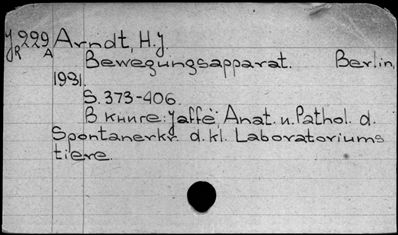 J 229 Arndt, H.J.
R A
Bewegungsapparat. Berlin,
1931.
S. 373-406.
В книге: Jaffë, Anat. u. Pathol. d.
Spontanerkr. d. kl. Laboratoriums
tiere.